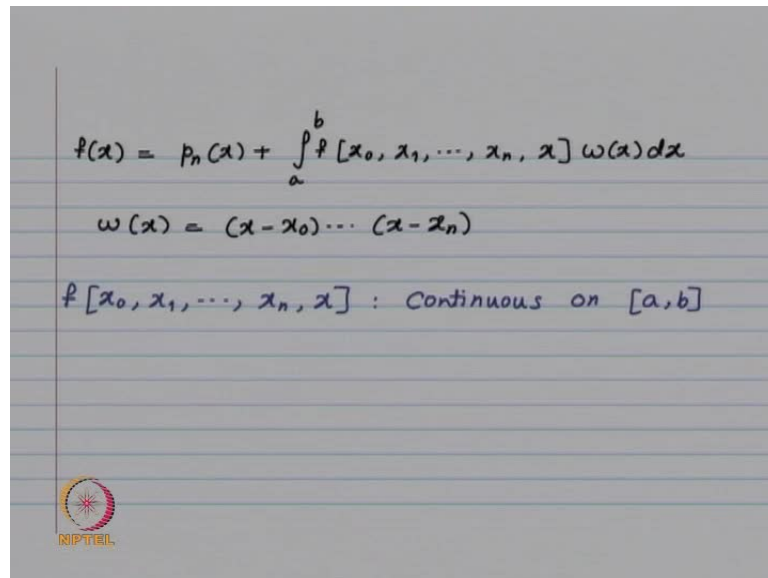 f(x) = pₙ(x) + ∫ₐᵇ f [x₀, x₁, ..., xₙ, x] ω(x) dx
ω(x) = (x - x₀) ... (x - xₙ)
f [x₀, x₁, ..., xₙ, x] : Continuous on [a, b]
NPTEL